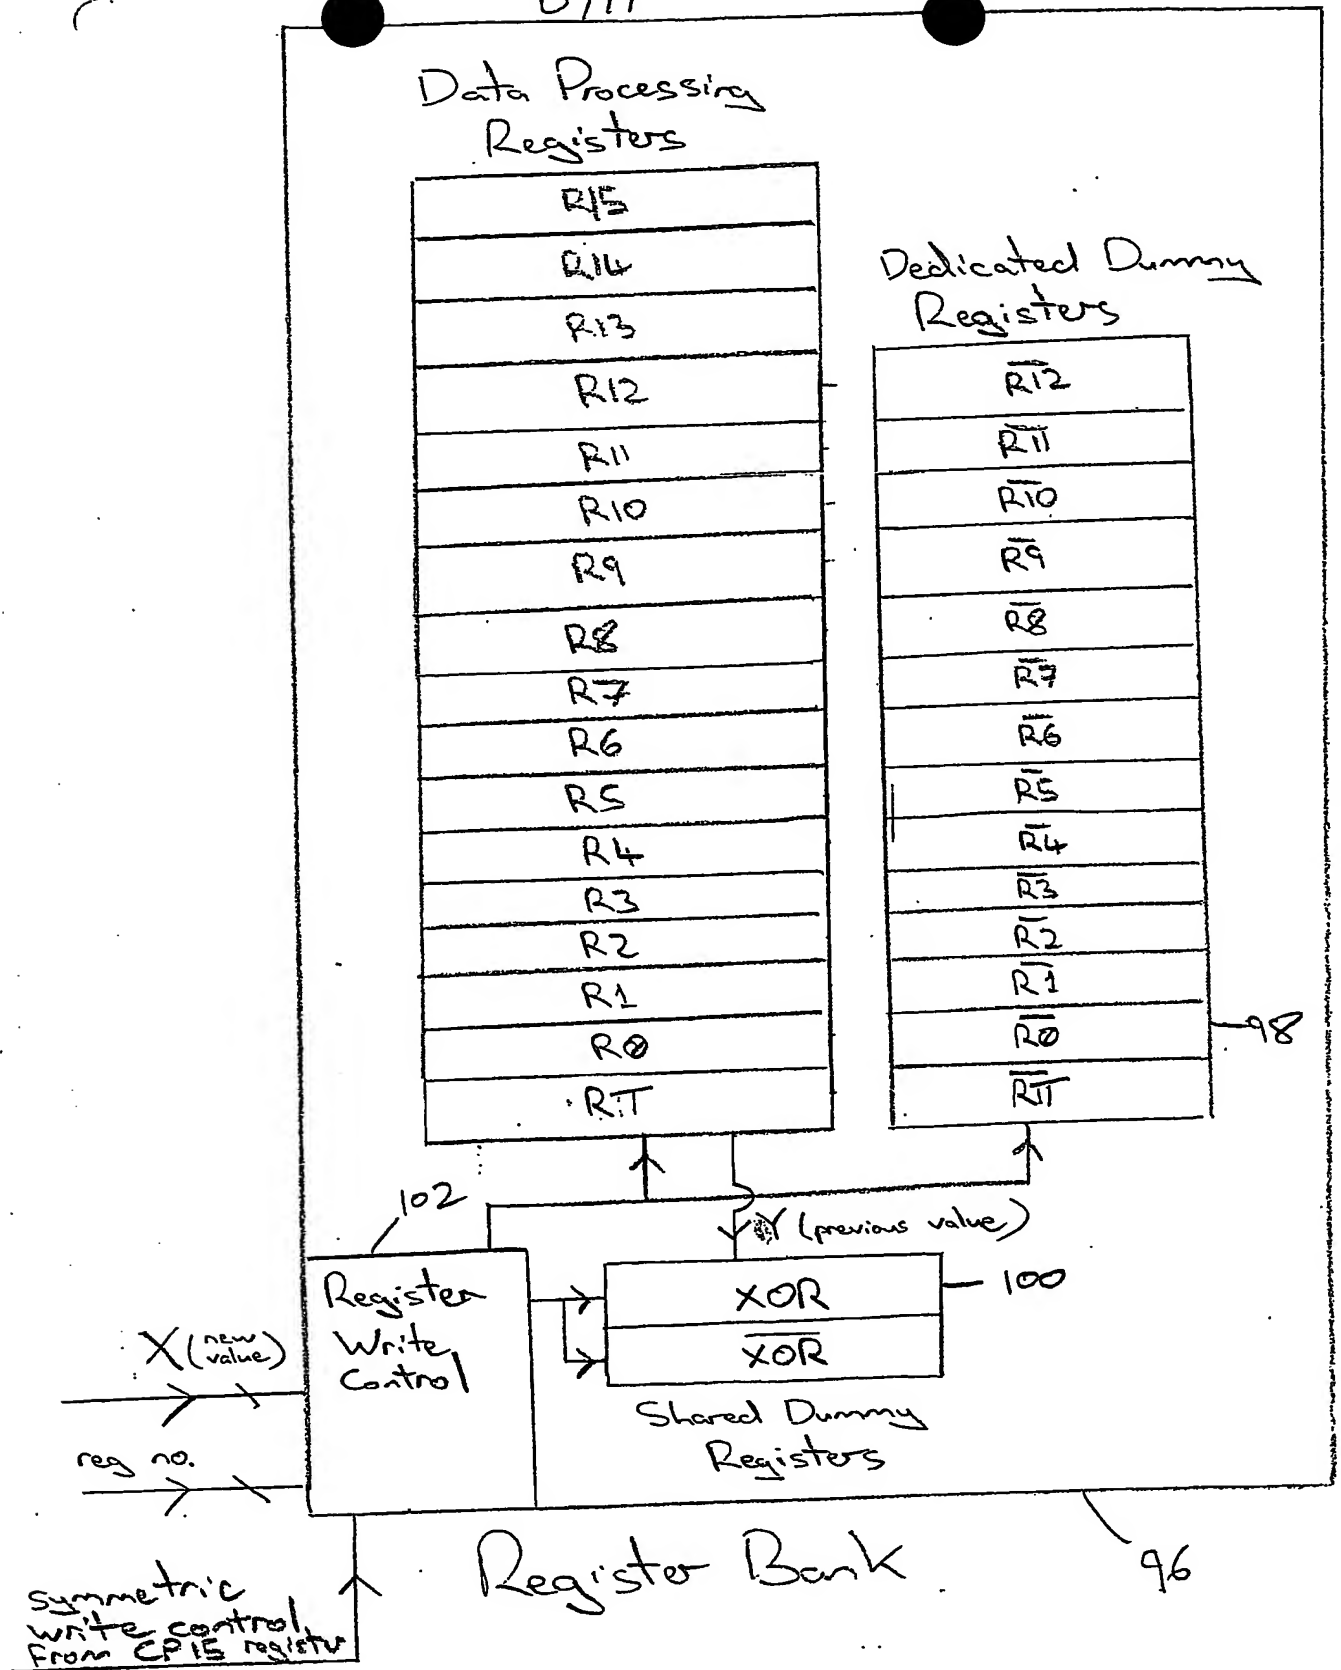 8/11
Data Processing
Registers
R15
R14
R13
R12
R11
R10
R9
R8
R7
R6
R5
R4
R3
R2
R1
R0
RT
Dedicated Dummy
Registers
R̅1̅2̅
R̅1̅1̅
R̅1̅0̅
R̅9̅
R̅8̅
R̅7̅
R̅6̅
R̅5̅
R̅4̅
R̅3̅
R̅2̅
R̅1̅
R̅0̅
R̅T̅
98
102
Y (previous value)
Register
Write
Control
XOR
X̅O̅R̅
100
Shared Dummy
Registers
X (new value)
reg no.
symmetric
write control
From CP15 register
Register Bank
96